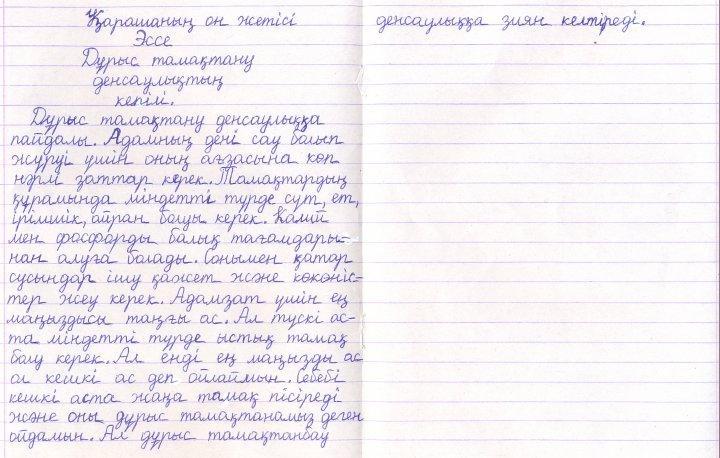 Қарашаның он жетісі
Эссе
Дұрыс тамақтану
денсаулықтың
кепілі.
Дұрыс тамақтану денсаулыққа
пайдалы. Адамның дені сау болып
жүруі үшін оның ағзасына көп
нәрлі заттар керек. Тамақтардың
құрамында міндетті түрде сүт, ет,
ірімшік, айран болуы керек. Калий
мен фосфорды балық тағамдары-
нан алуға болады. Сонымен қатар
сусындар ішу қажет және көкөніс-
тер жеу керек. Адамзат үшін ең
маңыздысы таңғы ас. Ал түскі ас-
та міндетті түрде ыстық тамақ
болу керек. Ал енді ең маңызды ас
ол кешкі ас деп ойлаймын. Себебі
кешкі аста жаңа тамақ пісіреді
және оны дұрыс тамақтанамыз деген
ойдамын. Ал дұрыс тамақтанбау
денсаулыққа зиян келтіреді.